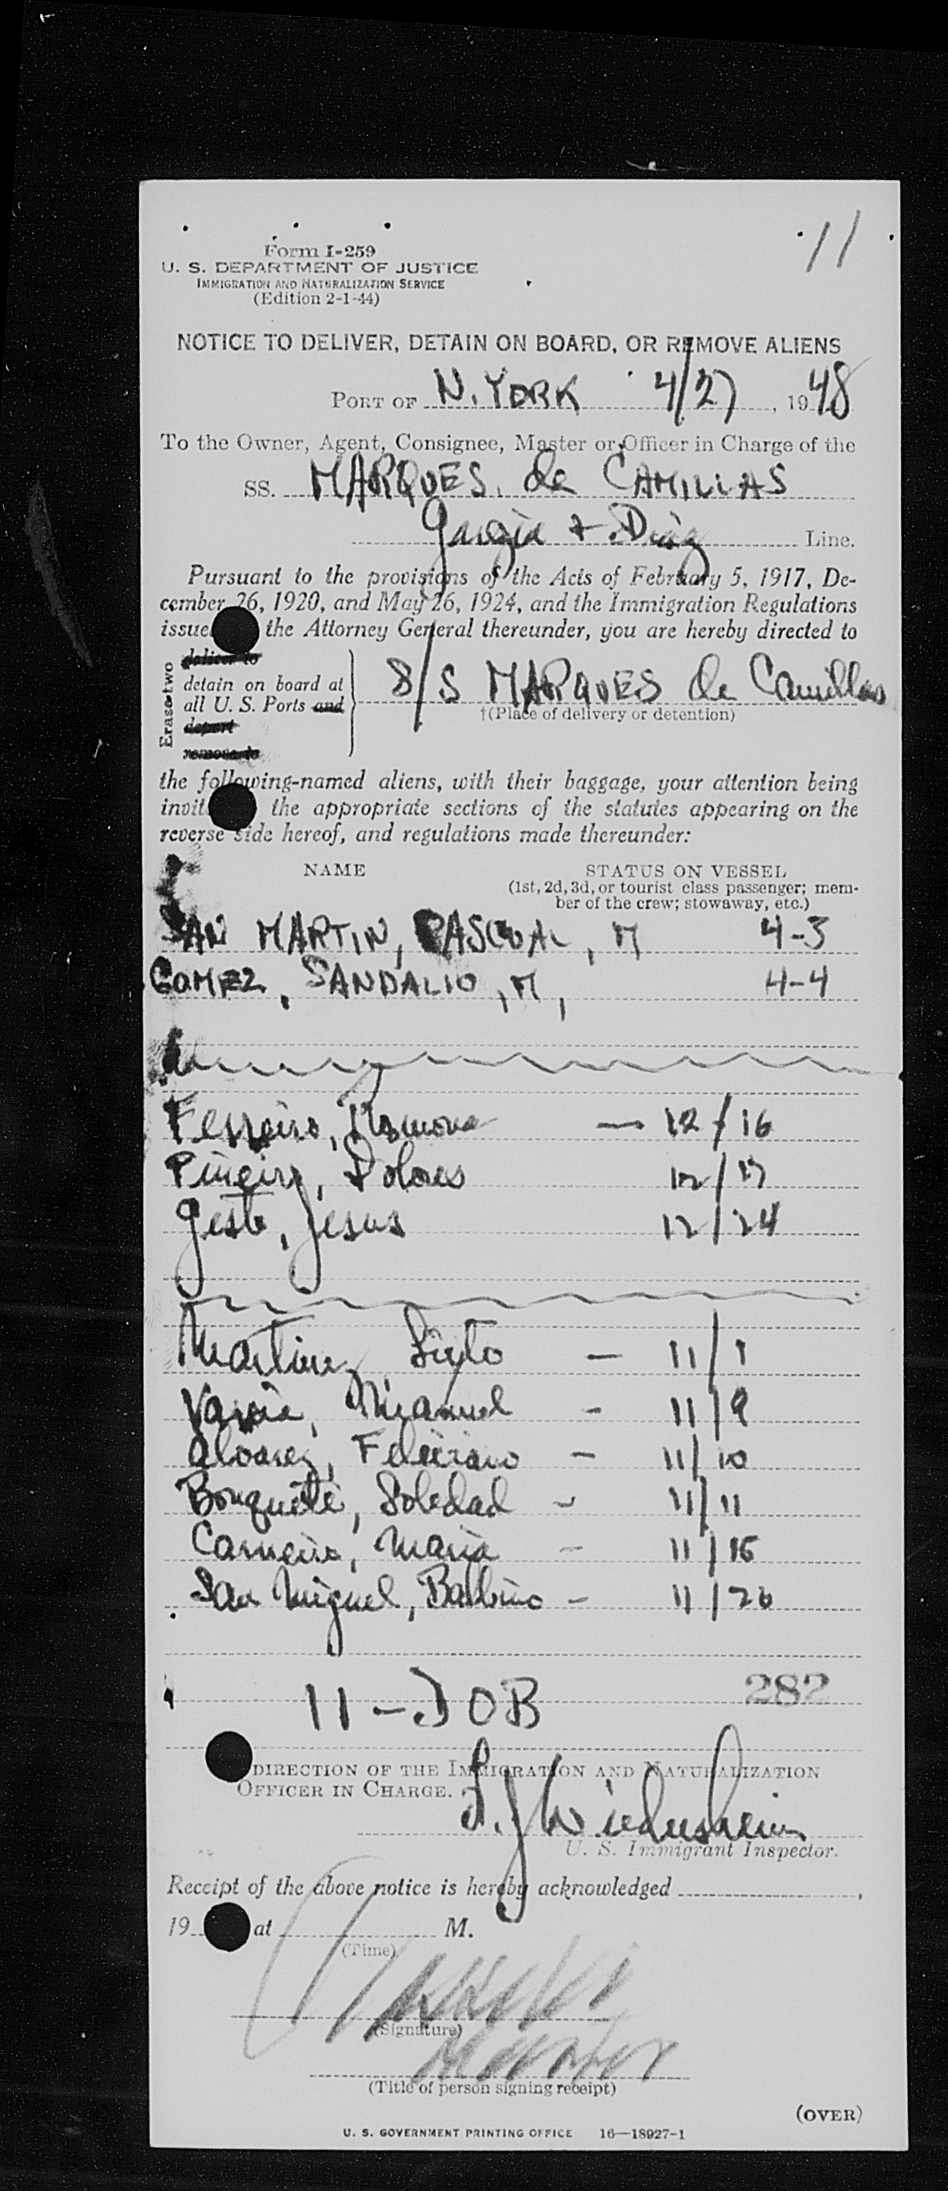 11
Form I-259
U. S. DEPARTMENT OF JUSTICE
IMMIGRATION AND NATURALIZATION SERVICE
(Edition 2-1-44)
NOTICE TO DELIVER, DETAIN ON BOARD, OR REMOVE ALIENS
PORT OF N. YORK 4/27, 1948
To the Owner, Agent, Consignee, Master or Officer in Charge of the
SS. MARQUES de CAMILLAS
Garzia & Diaz Line.
Pursuant to the provisions of the Acts of February 5, 1917, De-
cember 26, 1920, and May 26, 1924, and the Immigration Regulations
issue the Attorney General thereunder, you are hereby directed to
Erase two
deliver to
detain on board at
all U. S. Ports and
depart
remove to
S/S MARQUES de Camillas
†(Place of delivery or detention)
the following-named aliens, with their baggage, your attention being
invit the appropriate sections of the statutes appearing on the
reverse side hereof, and regulations made thereunder:
NAME STATUS ON VESSEL
(1st, 2d, 3d, or tourist class passenger; mem-
ber of the crew; stowaway, etc.)
SAN MARTIN, PASCUAL, M 4-3
GOMEZ, SANDALIO, M, 4-4
Ferreiro, Ramona — 12/16
Pineiro, Dolores 12/17
Gesto, Jesus 12/24
Martinez Sixto — 11/1
Manuel - 11/9
Alvarez, Feliciano - 11/10
Bouquete, Soledad - 11/11
Carneiro, Maria - 11/16
San Miguel, Balbino - 11/26
11 - DOB 282
DIRECTION OF THE IMMIGRATION AND NATURALIZATION
OFFICER IN CHARGE.
U. S. Immigrant Inspector.
Receipt of the above notice is hereby acknowledged ,
19 at M.
(Time)
(Signature)
Master
(Title of person signing receipt)
(OVER)
U. S. GOVERNMENT PRINTING OFFICE 16—18927-1